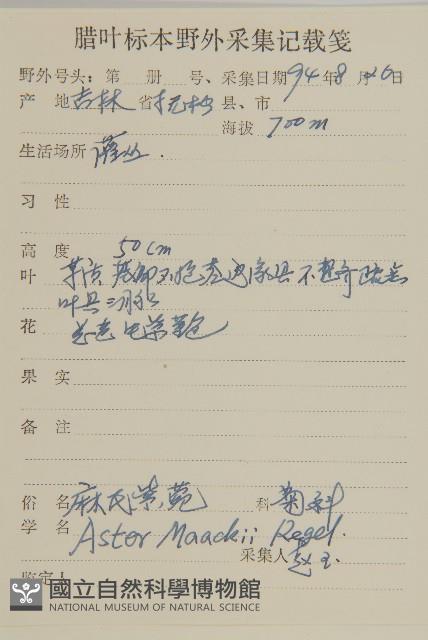 腊叶标本野外采集记载笺
野外号头：第 册 号、采集日期94年8月26日
产 地 吉林 省 县、市
海拔 700m
生活场所 灌丛.
习 性
高 度 50cm
叶 革质 基部不抱茎边缘具不整齐
叶具三脉
花
果 实
备 注
俗 名 麻氏紫菀 科 菊科
学 名 Aster Maackii Regel.
采集人 赵
鉴定人
國立自然科學博物館
NATIONAL MUSEUM OF NATURAL SCIENCE